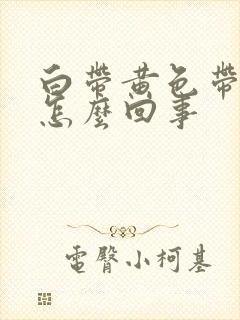 白帶黃色帶
怎麼回事
電臀小柯基